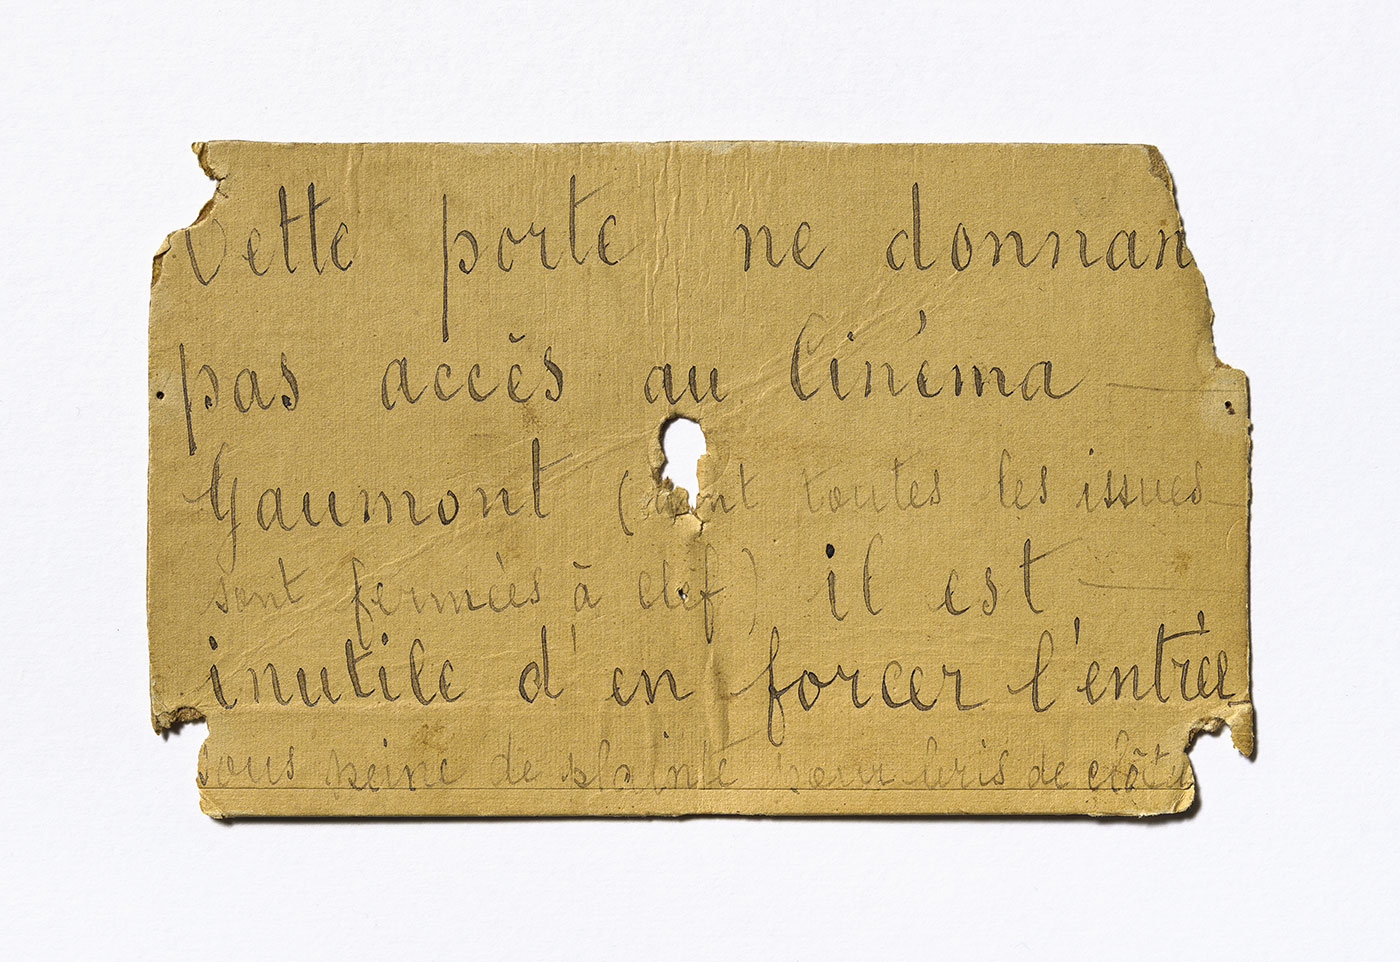 Cette porte ne donnan
pas accès au Cinéma
Gaumont (dont toutes les issues
sont fermées à clef) il est
inutile d'en forcer l'entrée
sous peine de plainte pour bris de clôtu